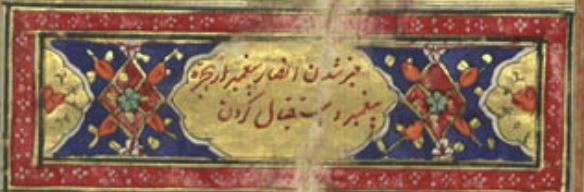 خبر شدن انصار پیغمبر از هجرة
پیغمبر و استقبال کردن